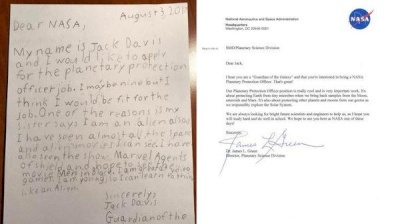 August 3, 2017
Dear NASA,
My name is Jack Davis
and I would like to apply
for the planetary protection
officer job. I may be nine but I
think I would be fit for the
job. One of the reasons is my
sister says I am an alien also
I have seen almost all the space
and alien movies I can see. I have
also seen the show Marvel Agents
of Shield and hope to see the
movie Men in Black. I am great at
games. I am young, so I can learn to think
like an Alien.
Sincerely,
Jack Davis
Guardian of the
NASA
National Aeronautics and Space Administration
Headquarters
Washington, DC 20546-0001
Planetary Science Division
Dear Jack,
I hear you are a "Guardian of the Galaxy" and that you're interested in being a NASA
Planetary Protection Officer. That's great!
Our Planetary Protection Officer position is really cool and is very important work. It's
about protecting Earth from tiny microbes when we bring back samples from the Moon,
asteroids and Mars. It's also about protecting other planets and moons from our germs as
we responsibly explore the Solar System.
We are always looking for bright future scientists and engineers to help us, so I hope you
will study hard and do well in school. We hope to see you here at NASA one of these
days!
Sincerely,
James L Green
Dr. James L. Green
Director, Planetary Science Division